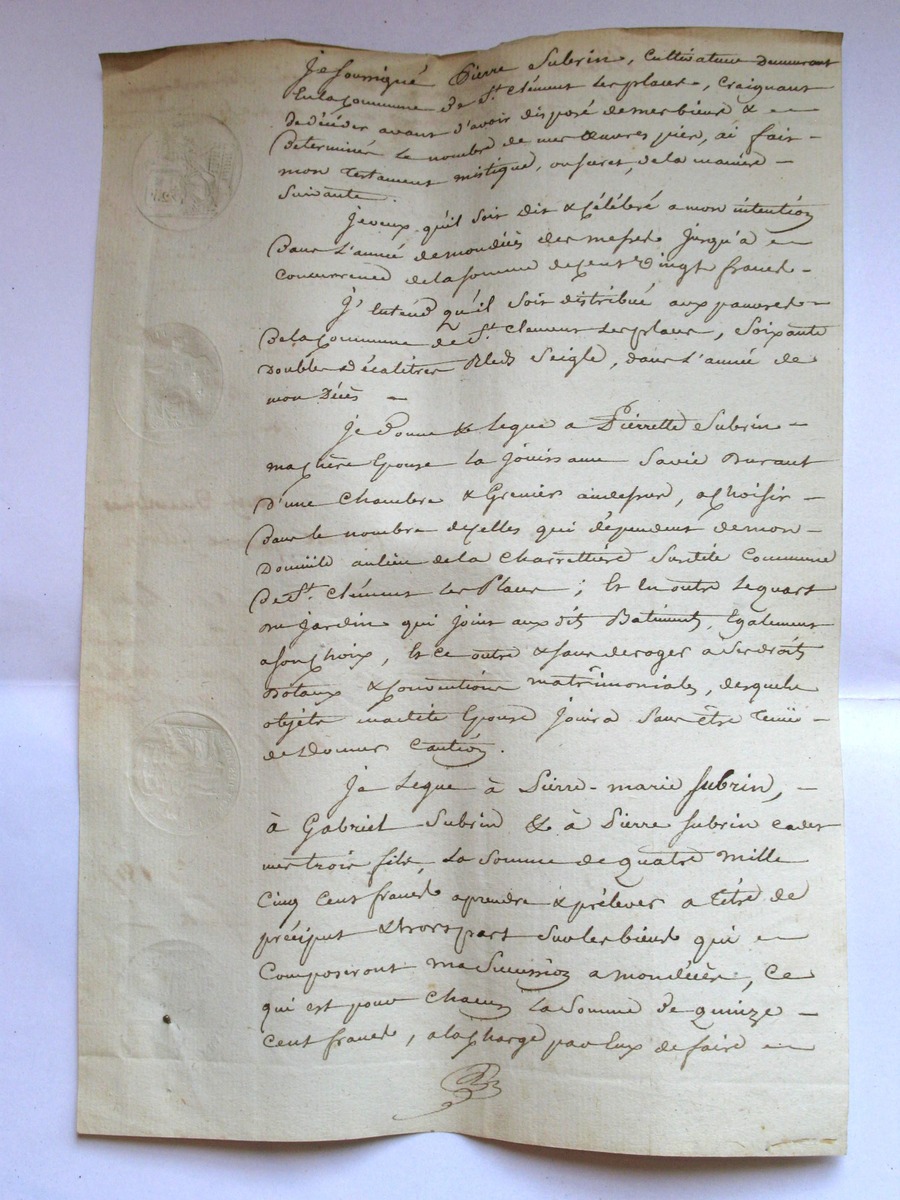 Je soussigné Pierre Subrin, Cultivateur demeurant
En la Commune de St. Clément les places, Craignant
de décéder avant d'avoir disposé de mes biens &
determiné le nombre de mes Œuvres pies, ai fait
mon testament mistique, ou secret, de la maniere
Suivante.
Je veux qu'il soit dit & Célébré a mon intention
Dans l'année de mon décès des messes jusqu'à
Concurrence de la somme de Cent vingt francs
J'entend qu'il soit distribué aux pauvres
De la Commune de St. Clement les places, Soixante
Doubles décalitres Bled Seigle, dans l'année de
mon Décès
Je Donne & Legue a Pierrette Subrin
ma Chère Epouse la jouissance Sa vie Durant
D'une Chambre & Grenier audessus, a Choisir
Dans le nombre de Celles qui dépendent de mon
Domicile au lieu de la Charrettière Susdite Commune
De St. Clément les Places ; Et En outre le quart
du jardin qui joint aux dits Batiments, Egalement
a son Choix, Et ce outre & sans deroger a ses droits
Dotaux & Conventions matrimoniales, desquels
objets madite Epouse Jouira Sans être tenüe
de Donner Caution.
Je Legue à Pierre-marie Subrin,
à Gabriel Subrin & à Pierre Subrin cadet
mes trois fils, la Somme de quatre mille
Cinq Cent francs aprendre & préléver a titre de
préciput & hors part Sur les biens qui
Composeront ma Succession a mon décès, Ce
qui est pour Chacun la Somme de quinze
Cent francs, a la Charge par Eux de faire